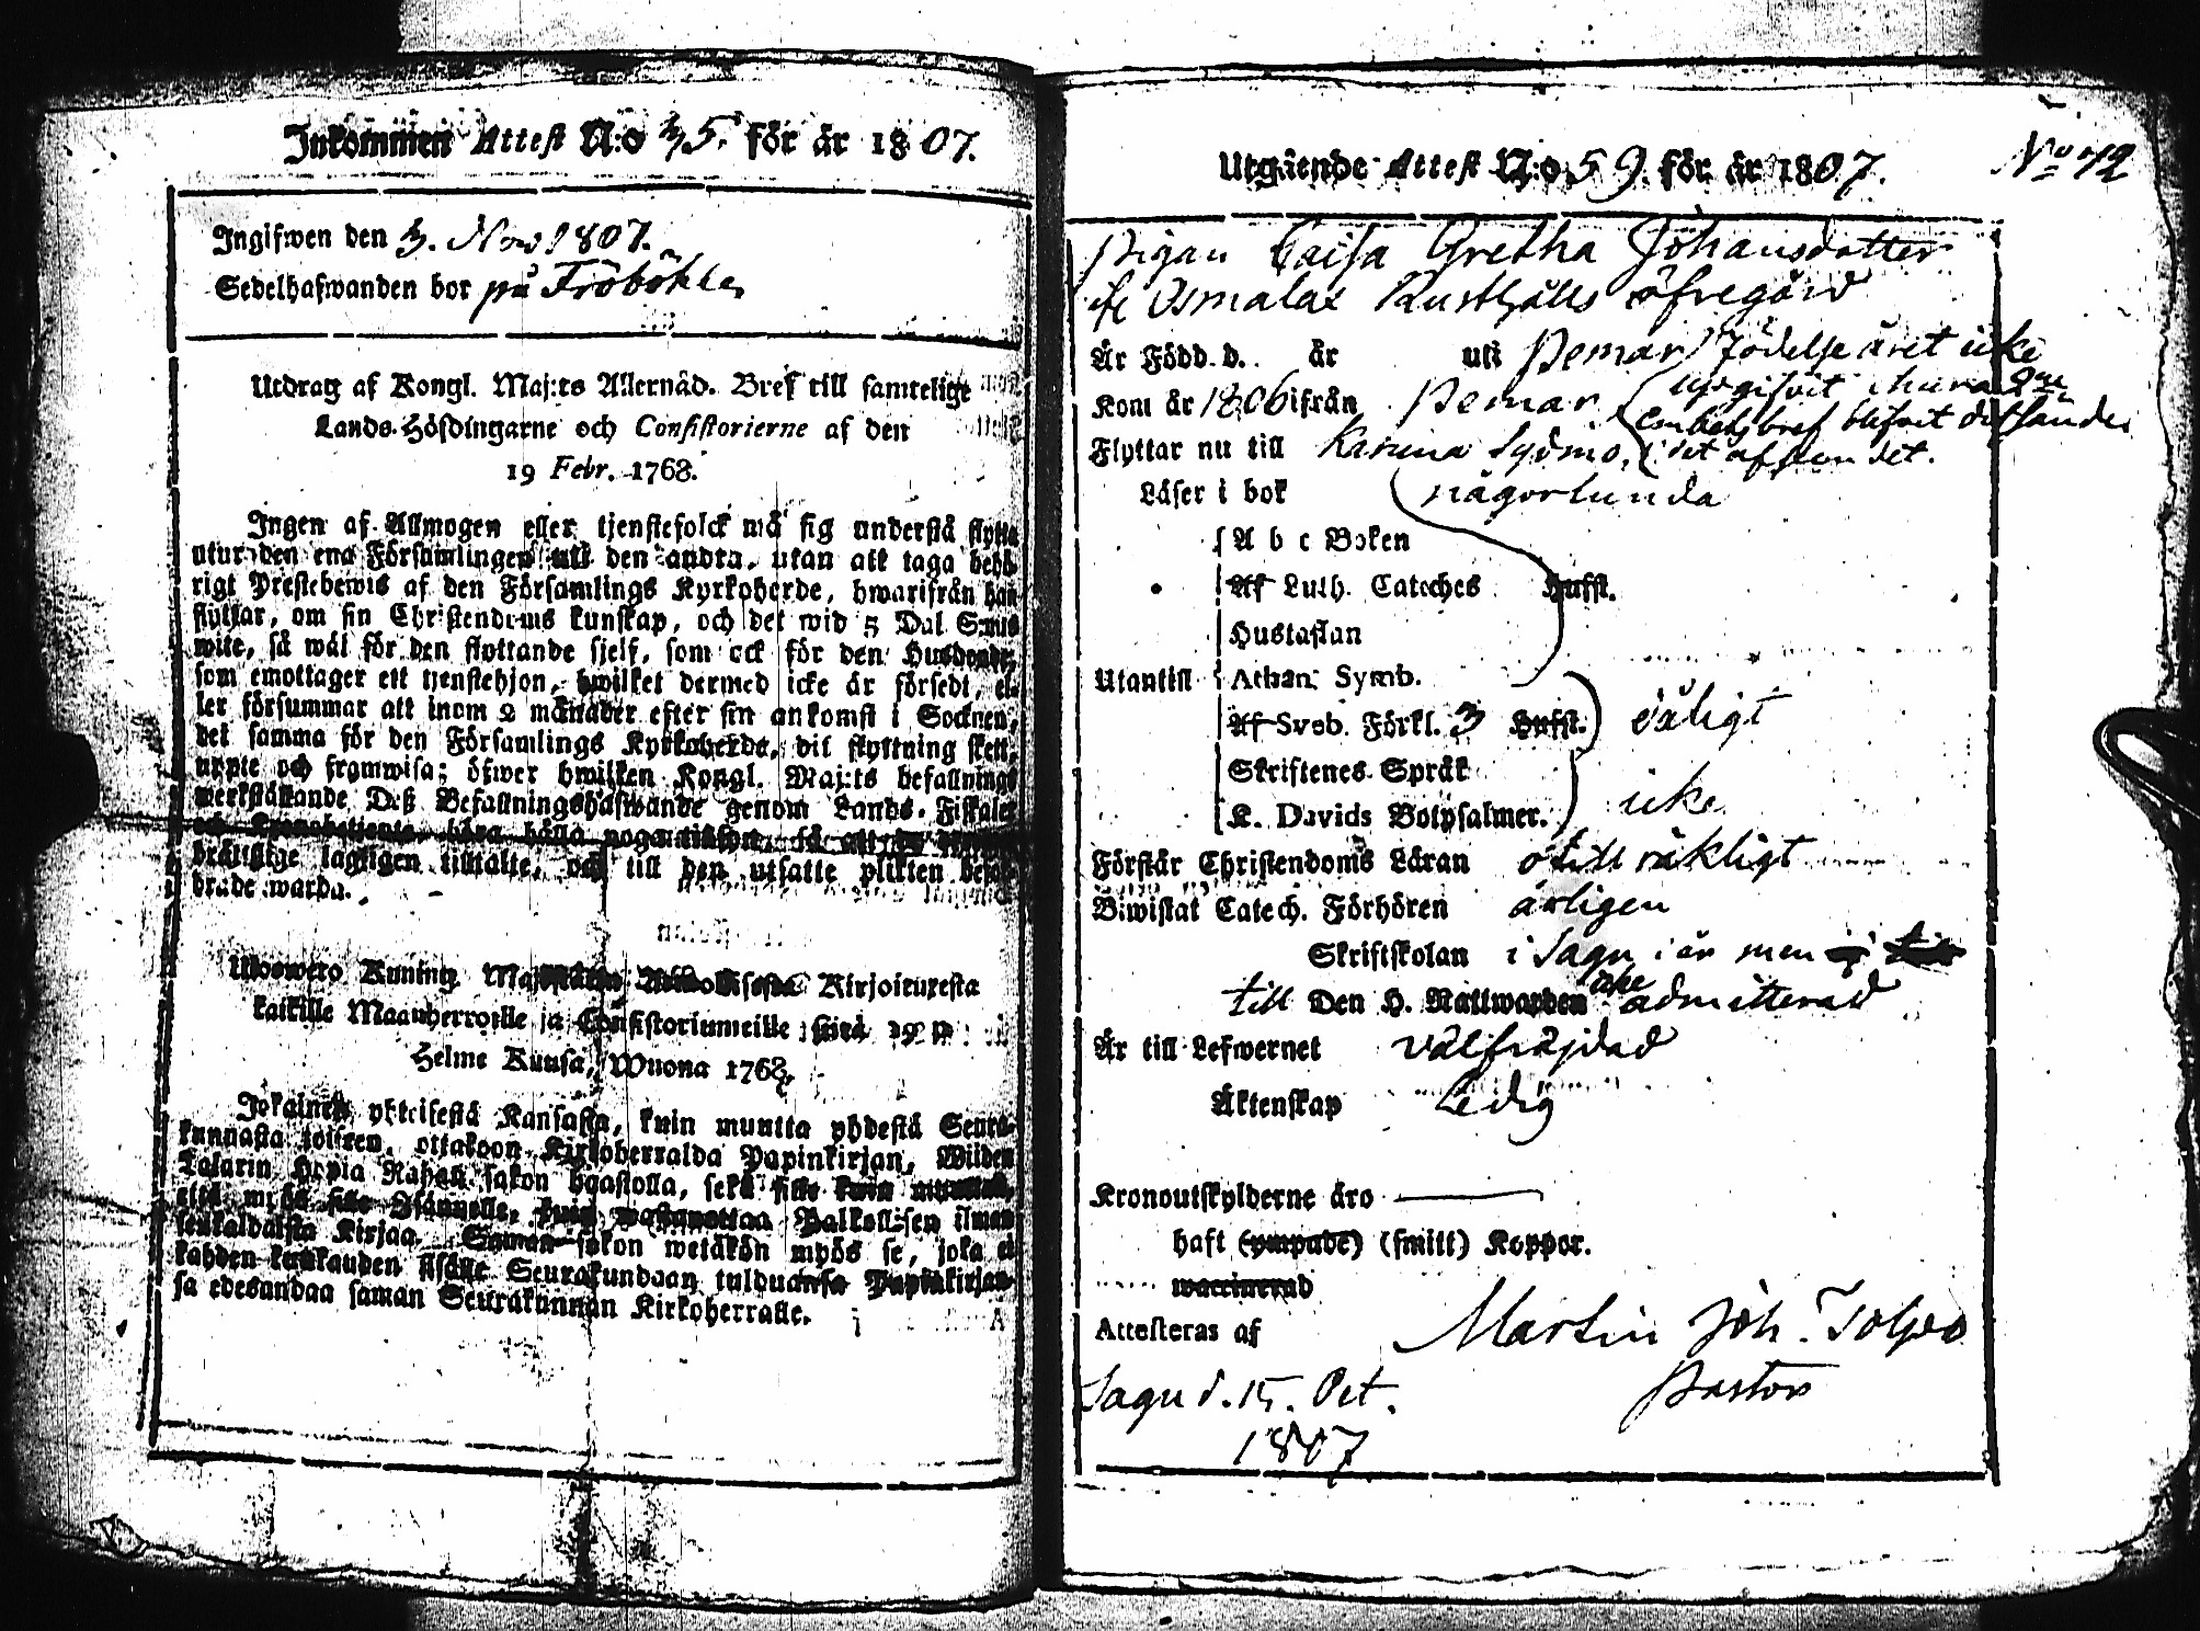 Inkommen Attest N:o 35. för år 1807.
Ingifwen den 3. Nov 1807.
Sedelhafwanden bor på Fröböhle
Utdrag af Kongl. Maj:ts Allernåd. Bref till samtelige
Lands-Höfdingarne och Consistorierne af den
19 Febr. 1768.
Ingen af Allmogen eller tjenstefolck må sig understå flytta
utur den ena Församlingen till den andra, utan att taga behö-
rigt Prestebewis af den Församlings Kyrkoherde, hwarifrån han
flyttar, om sin Christendoms kunskap, och det wid 5 Dal. S:mts
wite, så wäl för den flyttande sjelf, som ock för den Husbonde,
som emottager ett tjenstehjon, hwilket dermed icke är försedt, el-
ler försummar att inom 2 månader efter sin ankomst i Socknen,
det samma för den Församlings Kyrkoherde, dit flyttning skett,
uppte och framwisa; öfwer hwilken Kongl. Maj:ts befallnings
werkställande Deß Befallningshafwande genom Lands-Fiskaler
och Kronobetjente böra hålla noga tillsyn, så att
lagligen tilltalte, och till den utsatte plikten befor-
drade warda.
Ulosweto Kuning. Majestätin Kirjoituxesta
kaikille Maanherroille ja Consistoriumeille siitä 19 p.
Helme Kuusa, Wuona 1768.
Jokainen yhteisestä Kansasta, kuin muutta yhdestä Seura-
kunnasta toiseen, ottakoon Kirkoherralda Papinkirjan, Wiiden
Talarin Hopia Rahan sakon haastolla, sekä sille kuin muuttaa,
että myös sille Isännälle, kuin wastanottaa Palkollisen ilman
senkaldaista Kirjaa. Saman sakon wetäkön myös se, joka ei
kahden kuukauden sisälle Seurakundaan tulduansa Papinkirjan-
sa edesandaa saman Seurakunnan Kirkoherralle.
Utgående Attest N:o 59. för år 1807.
N:o 42
Pigan Caisa Gretha Johansdotter
fr Osmalax Rusthålls öfregård
Är Född. d. år uti Pemar / födelse året icke
Kom år 1806 ifrån Pemar uppgifvit
Flyttar nu till Karuna Sydmo, embetsbref blifvit
Läser i bok någorlunda
A b c Boken
Af Luth. Cateches Hufst.
Hustaflan
Utantill Athan. Symb.
Af Sveb. Förkl. 3 Hufst. ) dåligt
Skriftenes Språk
K. Davids Botpsalmer. ) icke
Förstår Christendoms Läran otillräkligt
Biwistat Catech. Förhören årligen
Skriftskolan i Sagu i år men
till Den H. Nattwarden icke admitterad
Är till Lefwernet välfräjdad
Äktenskap Ledig
Kronoutskylderne äro
haft (ympade) (smitt) Koppor.
waccinerad
Attesteras af Martin Joh. Tolpo
Sagu d. 15. Oct. Pastor
1807